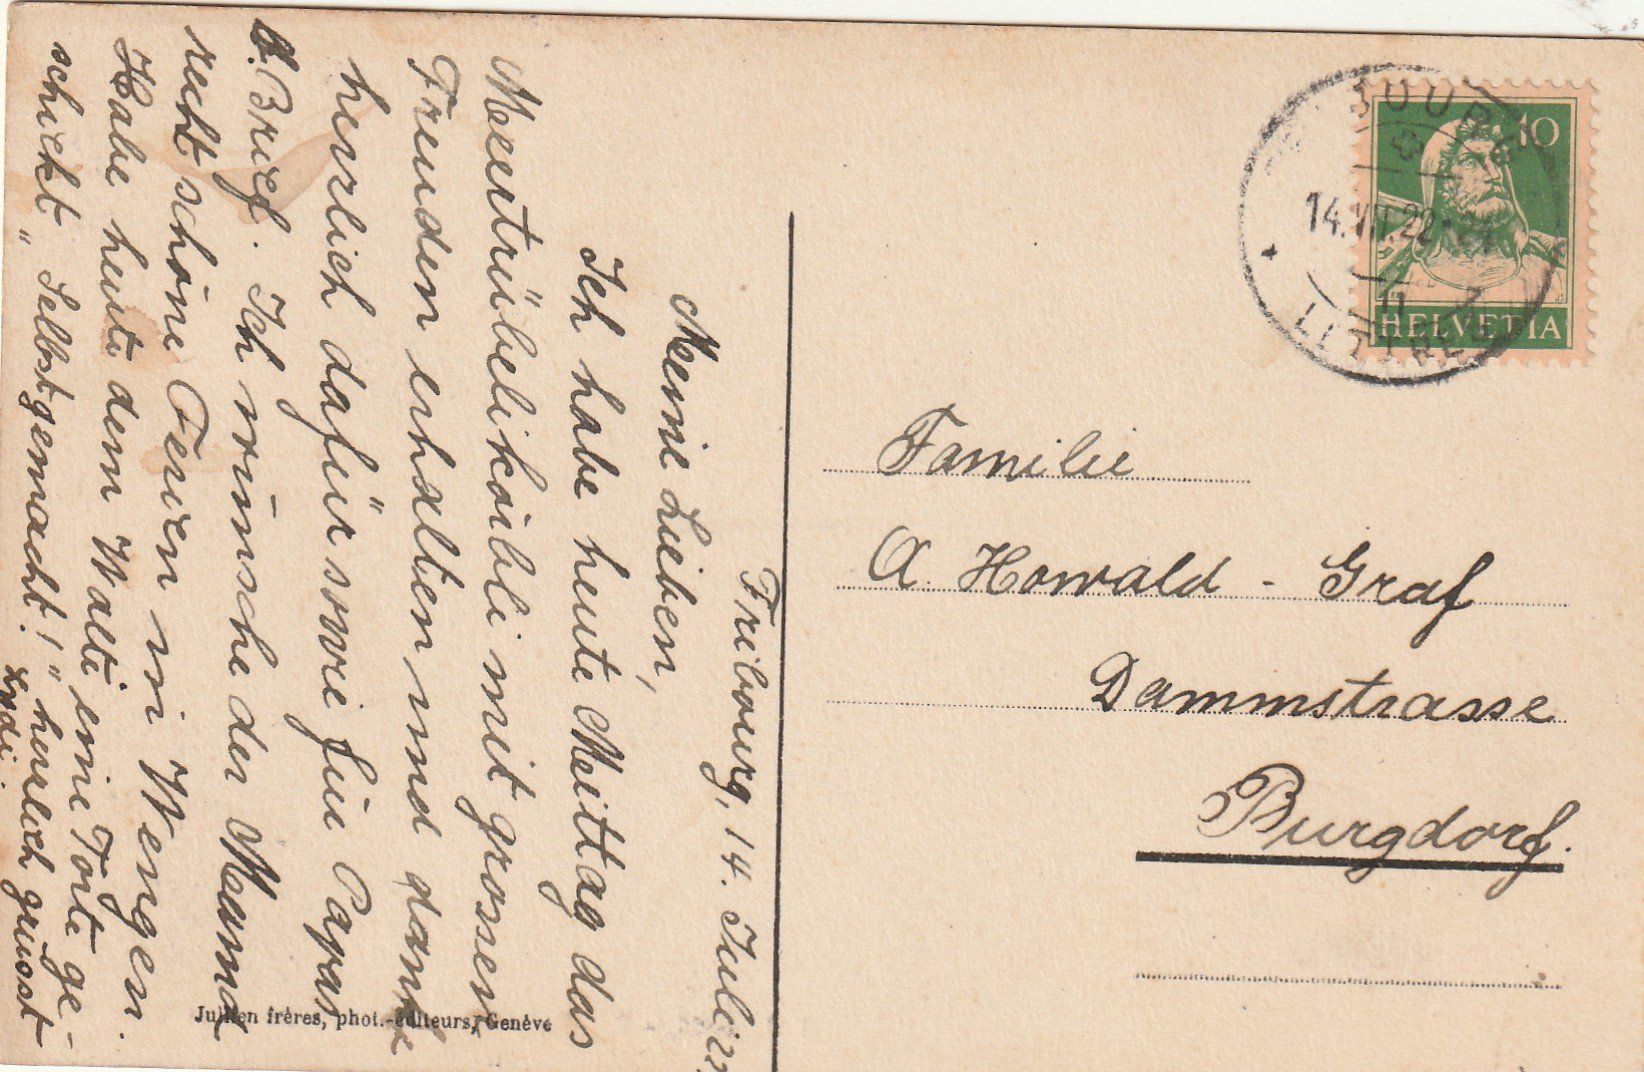 Fribourg, 14. Juli 22
Meine Lieben,
Ich habe heute Meittag das
Meertrübelikörbli mit grossen
Freuden erhalten und danke
herzlich dafür sowie für Papas
lb. Brief. Ich wünsche der Mama
recht schöne Ferien in Wengen.
Habe heute dem Walti eine Torte ge-
schickt „Selbstgemacht!" herzlich grüsst
Lydi.
Jullien frères, phot.-éditeurs, Genève
10
HELVETIA
14.VII.22
Familie
A. Howald - Graf
Dammstrasse
Burgdorf.